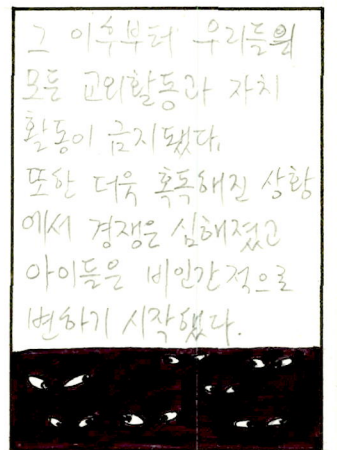 그 이후부터 우리들의
모든 교외활동과 자치
활동이 금지됐다.
또한 더욱 혹독해진 상황
에서 경쟁은 심해졌고
아이들은 비인간적으로
변하기 시작했다.